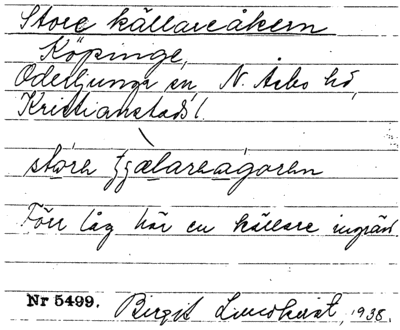 Store källareåkern
Köpinge,
Odeljunga sn, N. Åsbo hd,
Kristianstads l.
störa tjælareågoren
Förr låg här en källare ingräv
Nr 5499. Birgit Lundkvist, 1938.